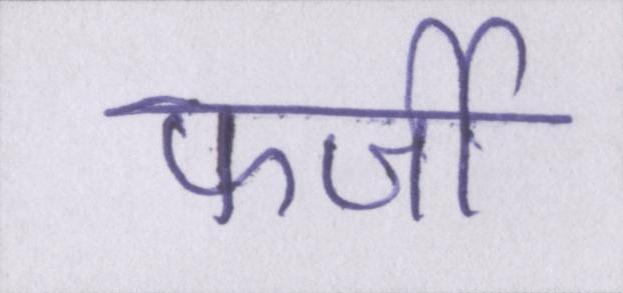 फर्जी